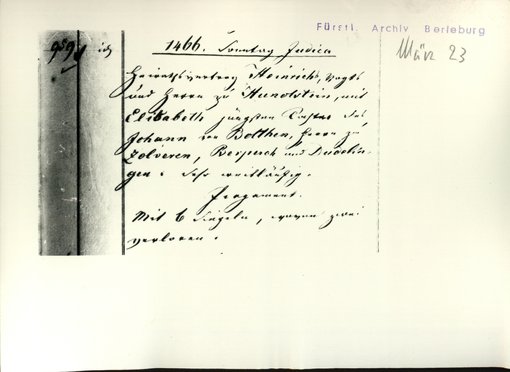 Fürstl. Archiv Berleburg
März 23
1466. Sonntag Judica
Heirathsvertrag Heinrichs, Vogts
und Herrn zu Hunolstein, mit
Elisabeth jüngsten Tochter des
Johann von Bolchen, Herrn zu
Zolveren, Berperch und Dudelin-
gen. Sehr weitläufig.
Pergament.
Mit 6 Siegeln, wovon zwei
verloren.